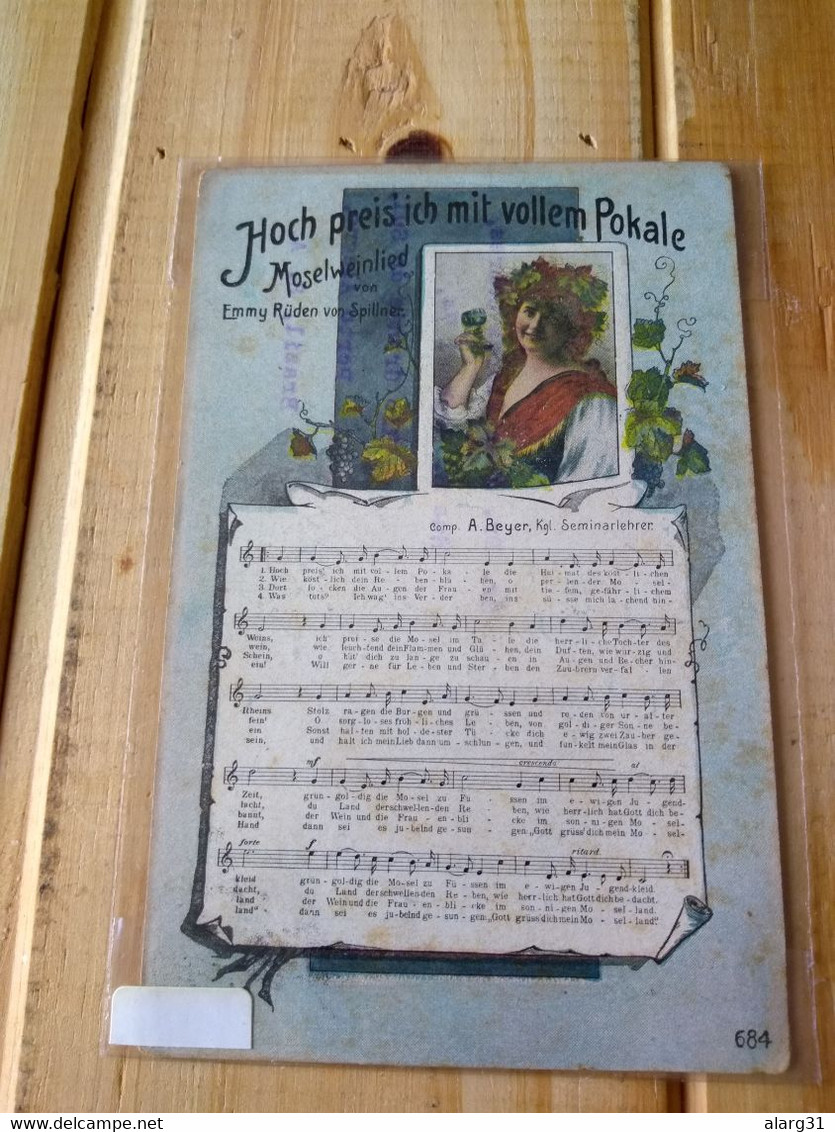 Hoch preis' ich mit vollem Pokale
Moselweinlied
von
Emmy Rüden von Spillner.
Comp. A. Beyer, Kgl. Seminarlehrer.
1. Hoch preis' ich mit vol - lem Po - ka - le die Hei - mat des köst - li - chen
2. Wie köst - lich dein Re - ben - blü - hen, o per - len - der Mo - sel -
3. Dort lo - cken die Au - gen der Frau - en mit tie - fem, gefähr - li - chem
4. Was tuts? Ich wag' ins Ver - der - ben, ins sü - sse mich la - chend hin -
Weins, ich prei - se die Mo - sel im Ta - le die herr - li - che Toch - ter des
wein, wie leuch - tend dein Flam - men und Glü - hen, dein Duf - ten, wie wür - zig und
Schein, o hüt' dich zu lan - ge zu schau - en in Au - gen und Be - cher hin -
ein! Will ger - ne für Le - ben und Ster - ben den Zau - bern ver - fal - len
Rheins Stolz ra - gen die Bur - gen und grü - ssen und re - den von ur - al - ter
fein! O sorg - lo - ses fröh - li - ches Le - ben, von gol - di - ger Son - ne be -
ein Sonst hal - ten mit hol - de - ster Tü - cke dich e - wig zwei Zau - ber ge -
sein, und halt ich mein Lieb dann um - schlun - gen, und fun - kelt mein Glas in der
mf crescendo al
Zeit, grün - gol - dig die Mo - sel zu Fü - ssen im e - wi - gen Ju - gend -
lacht, du Land der schwellen - den Re - ben, wie herr - lich hat Gott dich be -
bannt, der Wein und die Frau - en - bli - cke im son - ni - gen Mo - sel -
Hand dann sei es ju - belnd ge - sun - gen: „Gott grüss' dich mein Mo - sel -
forte f ritard.
kleid grün - gol - dig die Mo - sel zu Fü - ssen im e - wi - gen Ju - gend - kleid.
dacht, du Land der schwellen den Re - ben, wie herr - lich hat Gott dich be - dacht.
land der Wein und die Frau - en - bli - cke im son - ni - gen Mo - sel - land.
land" - dann sei es ju - belnd ge - sun - gen: „Gott grüss' dich mein Mo - sel - land!"
684
delcampe.net
alarg31